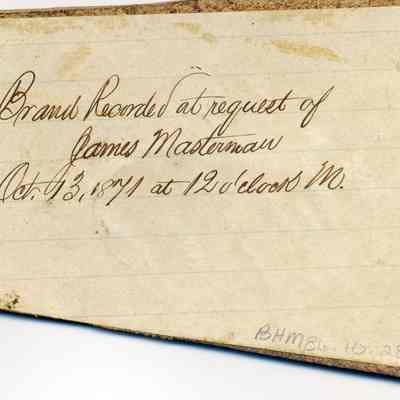 Brand Recorded at request of
James Masterman
Oct. 13, 1871 at 12 o'clock M.
BHM